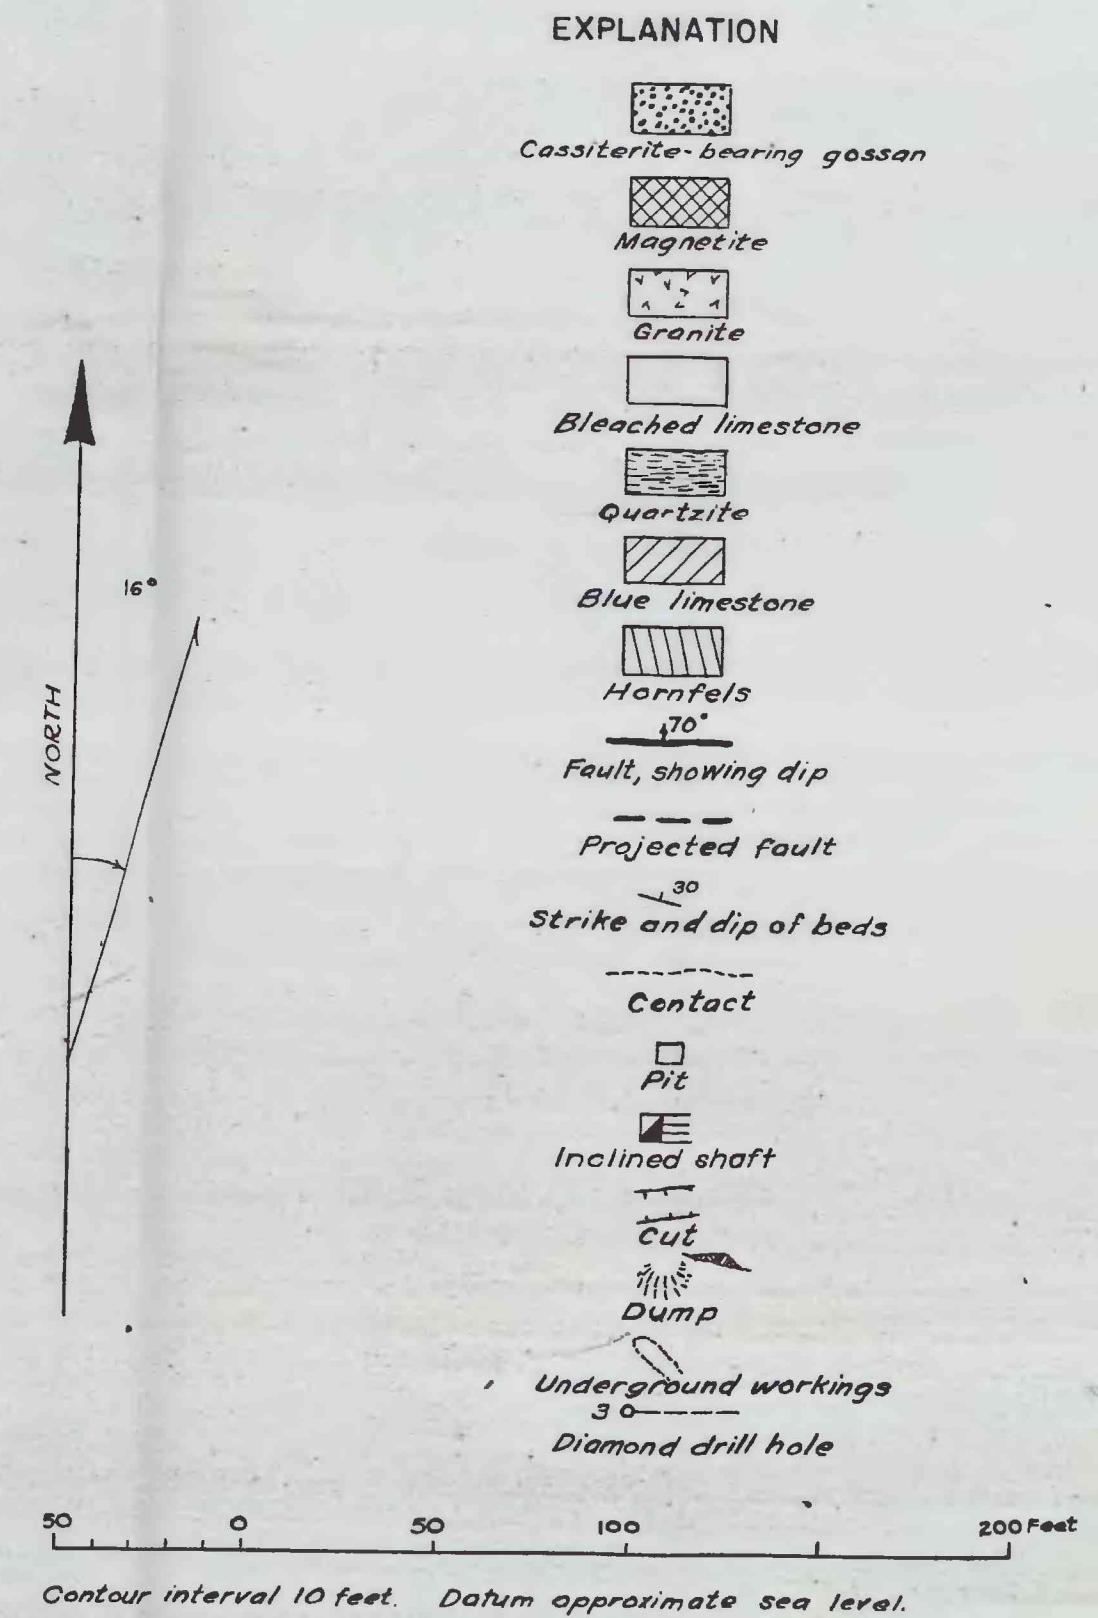 EXPLANATION
Cassiterite-bearing gossan
Magnetite
Granite
Bleached limestone
Quartzite
16°
Blue limestone
Hornfels
NORTH
70°
Fault, showing dip
Projected fault
30
Strike and dip of beds
Contact
Pit
Inclined shaft
Cut
Dump
Underground workings
3
Diamond drill hole
50 0 50 100 200 Feet
Contour interval 10 feet. Datum approximate sea level.